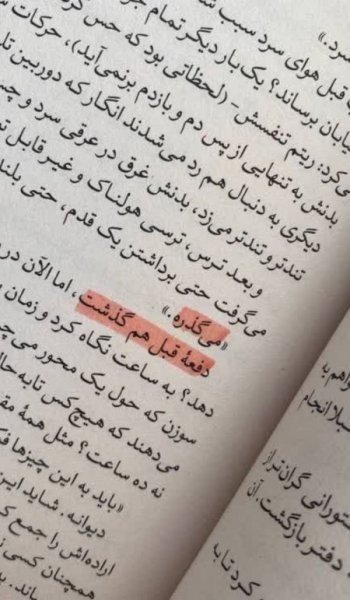 سرد.»
قبل هوای سرد سبب
یابان برساند؟ یک‌بار دیگر تمام
می‌کرد: ریتم تنفسش - (لحظاتی بود که حس
بدنش به تنهایی از پس دم و بازدم برنمی‌آید)، حرکات
دیگری به دنبال هم رد می‌شدند انگار که دوربین
تندتر و تندتر می‌زد، بدنش غرق در عرقی سرد و
و بعد ترس، ترسی هولناک و غیر قابل
می‌گرفت حتی برداشتن یک قدم، حتی
«می‌گذره.»
دفعهٔ قبل هم گذشت، اما الآن در
دهد؟ به ساعت نگاه کرد و زمان
سوزن که حول یک محور
می‌دهند که هیچ‌کس تا به
نه ده ساعت؟ مثل همهٔ
«باید به این چیزها
دیوانه. شاید
اراده‌اش را جمع
همچنان کسی
اهم به
انجام
ستورانی گران‌تر از
دفتر بازگشت. آن
کرد تا به